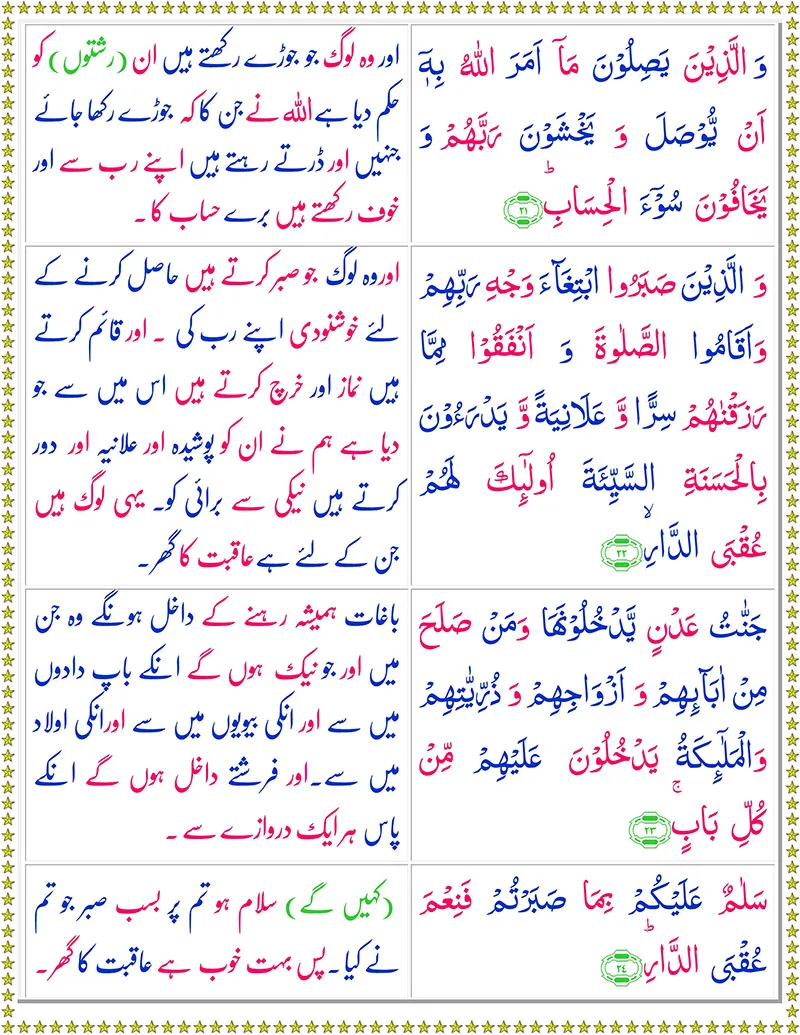 وَ الَّذِیْنَ یَصِلُوْنَ مَاۤ اَمَرَ اللّٰهُ بِهٖۤ
اَنْ یُّوْصَلَ وَ یَخْشَوْنَ رَبَّهُمْ وَ
یَخَافُوْنَ سُوْٓءَ الْحِسَابِؕ ۲۱
اور وہ لوگ جو جوڑے رکھتے ہیں ان (رشتوں) کو
حکم دیا ہے اللہ نے جن کا کہ جوڑے رکھا جائے
جنہیں اور ڈرتے رہتے ہیں اپنے رب سے اور
خوف رکھتے ہیں برے حساب کا۔
وَ الَّذِیْنَ صَبَرُوا ابْتِغَآءَ وَجْهِ رَبِّهِمْ
وَاَقَامُوا الصَّلٰوةَ وَ اَنْفَقُوْا مِمَّا
رَزَقْنٰهُمْ سِرًّا وَّ عَلَانِیَةً وَّ یَدْرَءُوْنَ
بِالْحَسَنَةِ السَّیِّئَةَ اُولٰٓىِٕكَ لَهُمْ
عُقْبَى الدَّارِۙ ۲۲
اور وہ لوگ جو صبر کرتے ہیں حاصل کرنے کے
لئے خوشنودی اپنے رب کی ۔ اور قائم کرتے
ہیں نماز اور خرچ کرتے ہیں اس میں سے جو
دیا ہے ہم نے ان کو پوشیدہ اور علانیہ اور دور
کرتے ہیں نیکی سے برائی کو۔ یہی لوگ ہیں
جن کے لئے ہے عاقبت کا گھر۔
جَنّٰتُ عَدْنٍ یَّدْخُلُوْنَهَا وَمَنْ صَلَحَ
مِنْ اٰبَآىِٕهِمْ وَ اَزْوَاجِهِمْ وَ ذُرِّیّٰتِهِمْ
وَالْمَلٰٓىِٕكَةُ یَدْخُلُوْنَ عَلَیْهِمْ مِّنْ
كُلِّ بَابٍۚ ۲۳
باغات ہمیشہ رہنے کے داخل ہونگے وہ جن
میں اور جو نیک ہوں گے انکے باپ دادوں
میں سے اور انکی بیویوں میں سے اور انکی اولاد
میں سے۔ اور فرشتے داخل ہوں گے انکے
پاس ہر ایک دروازے سے ۔
سَلٰمٌ عَلَیْكُمْ بِمَا صَبَرْتُمْ فَنِعْمَ
عُقْبَى الدَّارِؕ ۲۴
(کہیں گے) سلام ہو تم پر بسب صبر جو تم
نے کیا۔ پس بہت خوب ہے عاقبت کا گھر۔